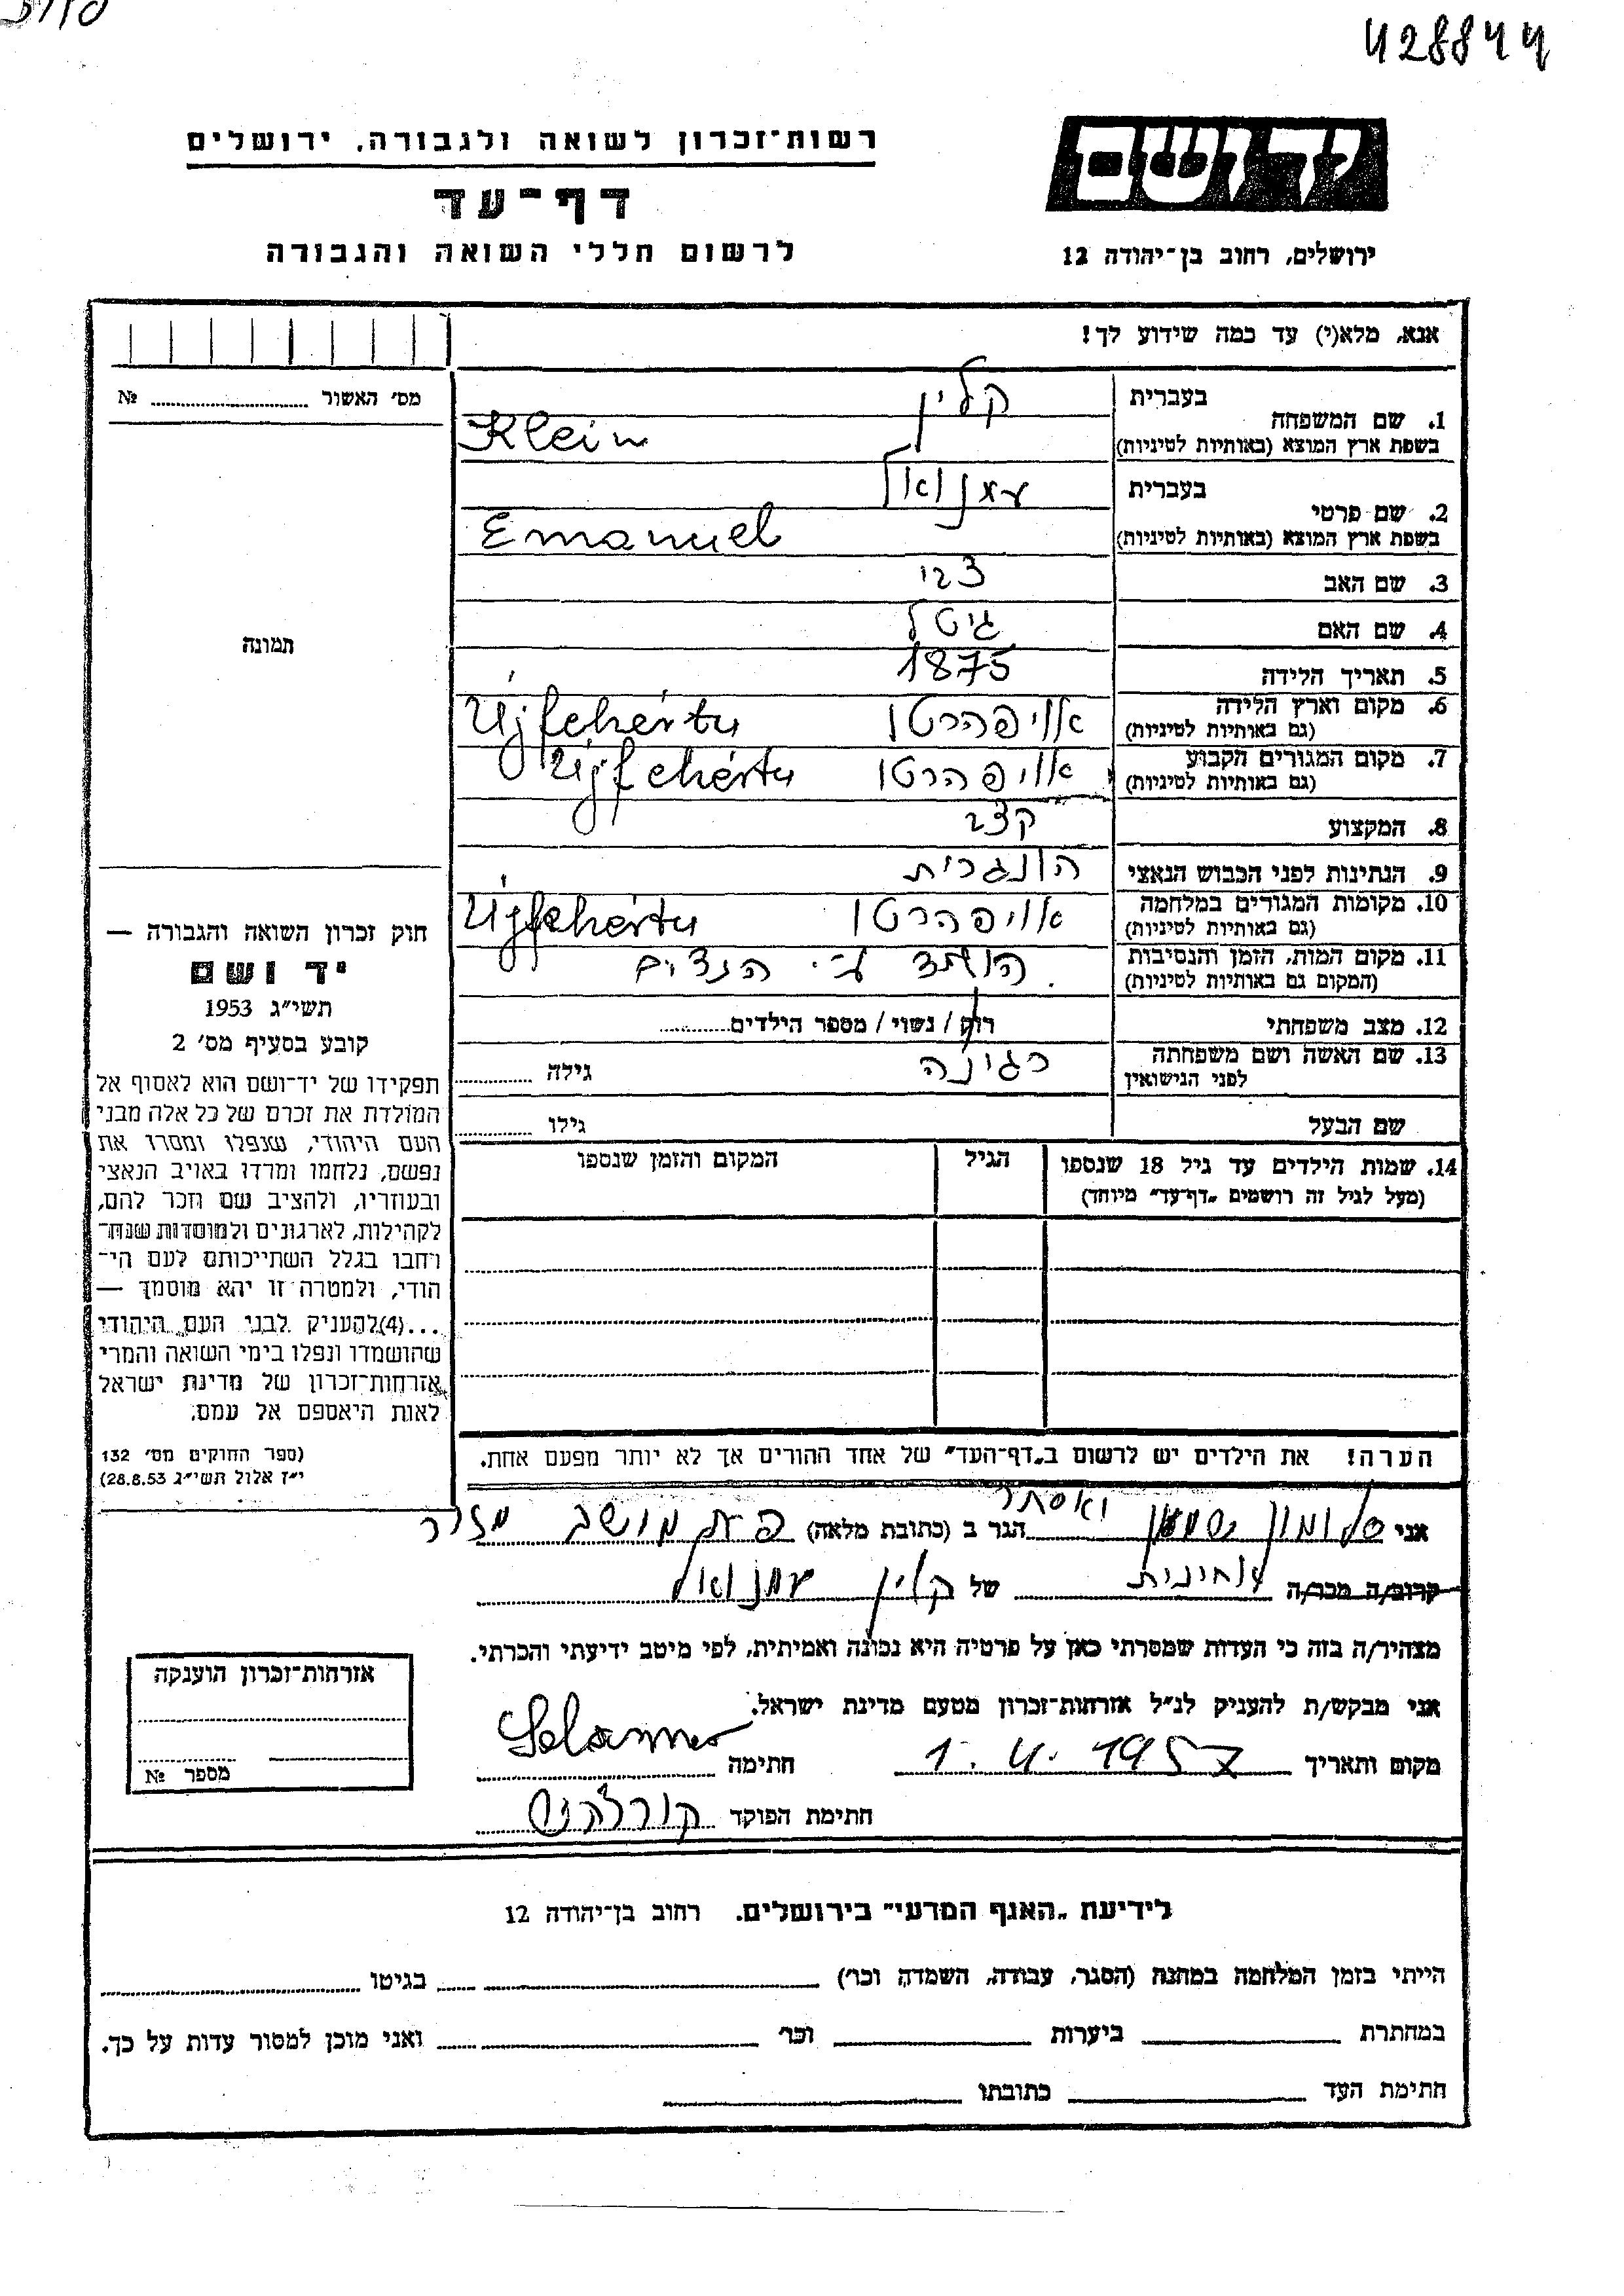 428844
רשות־זכרון לשואה ולגבורה, ירושלים
יד ושם
דף־עד
לרשום חללי השואה והגבורה
ירושלים, רחוב בן־יהודה 12
אנא, מלא(י) עד כמה שידוע לך!
מס׳ האשור № 
תמונה
1. שם המשפחה בעברית קליין
בשפת ארץ המוצא (באותיות לטיניות) Klein
2. שם פרטי בעברית עמנואל
בשפת ארץ המוצא (באותיות לטיניות) Emanuel
3. שם האב צבי
4. שם האם גיטל
5. תאריך הלידה 1875
6. מקום וארץ הלידה (גם באותיות לטיניות) אוויפהרטו Újfehértu
7. מקום המגורים הקבוע (גם באותיות לטיניות) אוויפהרטו Újfehértu
8. המקצוע קצב
9. הנתינות לפני הכבוש הנאצי הונגרית
10. מקומות המגורים במלחמה (גם באותיות לטיניות) אוויפהרטו Újfehértu
11. מקום המות, הזמן והנסיבות (המקום גם באותיות לטיניות) הושמד ע״י הנצים
12. מצב משפחתי רוק / נשוי / מספר הילדים
13. שם האשה ושם משפחתה לפני הנישואין רגינה גילה
שם הבעל גילו
14. שמות הילדים עד גיל 18 שנספו הגיל המקום והזמן שנספו
(מעל לגיל זה רושמים „דף־עד״ מיוחד)
הערה! את הילדים יש לרשום ב„דף־העד״ של אחד ההורים אך לא יותר מפעם אחת.
חוק זכרון השואה והגבורה —
יד ושם
תשי״ג 1953
קובע בסעיף מס׳ 2
תפקידו של יד־ושם הוא לאסוף אל
המולדת את זכרם של כל אלה מבני
העם היהודי, שנפלו ומסרו את
נפשם, נלחמו ומרדו באויב הנאצי
ובעוזריו, ולהציב שם וזכר להם,
לקהילות, לארגונים ולמוסדות שנח־
רחבו בגלל השתייכותם לעם הי־
הודי, ולמטרה זו יהא מוסמך —
...(4) להעניק לבני העם היהודי
שהושמדו ונפלו בימי השואה והמרי
אזרחות־זכרון של מדינת ישראל
לאות היאספם אל עמם.
(ספר החוקים מס׳ 132
י״ז אלול תשי״ג 28.8.53)
אני סלומון שמעון ואסתר הגר ב (כתובת מלאה) פ״ת מושב מזור
קרוב/ה מכר/ה אחינית של קליין עמנואל
מצהיר/ה בזה כי העדות שמסרתי כאן על פרטיה היא נכונה ואמיתית, לפי מיטב ידיעתי והכרתי.
אני מבקש/ת להעניק לנ״ל אזרחות־זכרון מטעם מדינת ישראל.
מקום ותאריך 1.4.1957 חתימה
חתימת הפוקד
אזרחות־זכרון הוענקה
מספר №
לידיעת „האגף המדעי״ בירושלים. רחוב בן־יהודה 12
הייתי בזמן המלחמה במחנה (הסגר, עבודה, השמדה וכו׳) בגיטו
במחתרת ביערות וכו׳ ואני מוכן למסור עדות על כך.
חתימת העד כתובתו